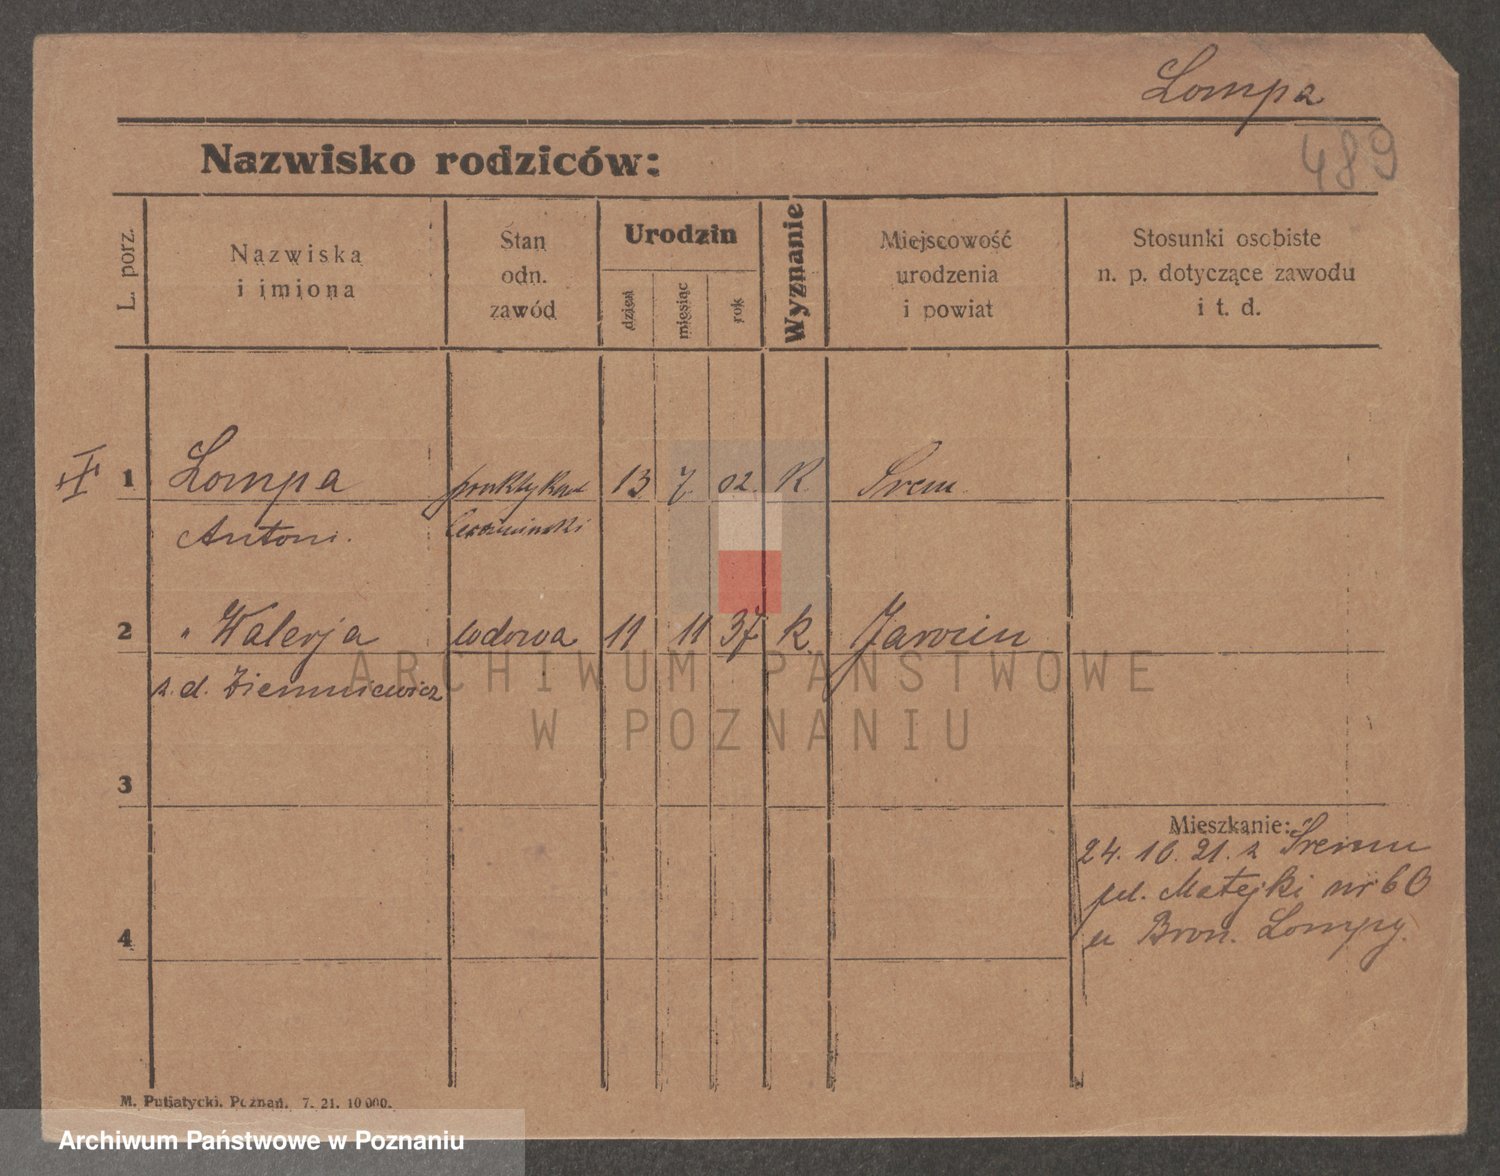 Lompa
489
Nazwisko rodziców:
L. porz.
Nazwiska
i imiona
Stan
odn.
zawód
Urodzin
dzień
miesiąc
rok
Wyznanie
Miejscowość
urodzenia
i powiat
Stosunki osobiste
n. p. dotyczące zawodu
i t. d.
1 Lompa 13 7 02 K. Śrem
Antoni.
2 " Walerja wdowa 11 11 37 k. Jarocin
z. d. Ziemniewicz
ARCHIWUM PAŃSTWOWE
W POZNANIU
3
Mieszkanie:
24. 10. 21. z Śremu
pl. Matejki nr 60
u Bron. Lompy.
4
M. Putiatycki. Poznań. 7. 21. 10 000.
Archiwum Państwowe w Poznaniu